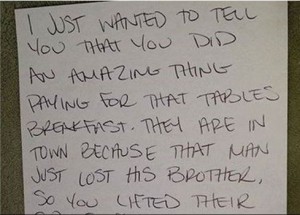 I JUST WANTED TO TELL
YOU THAT YOU DID
AN AMAZING THING
PAYING FOR THAT TABLES
BREAKFAST. THEY ARE IN
TOWN BECAUSE THAT MAN
JUST LOST HIS BROTHER,
SO YOU LIFTED THEIR